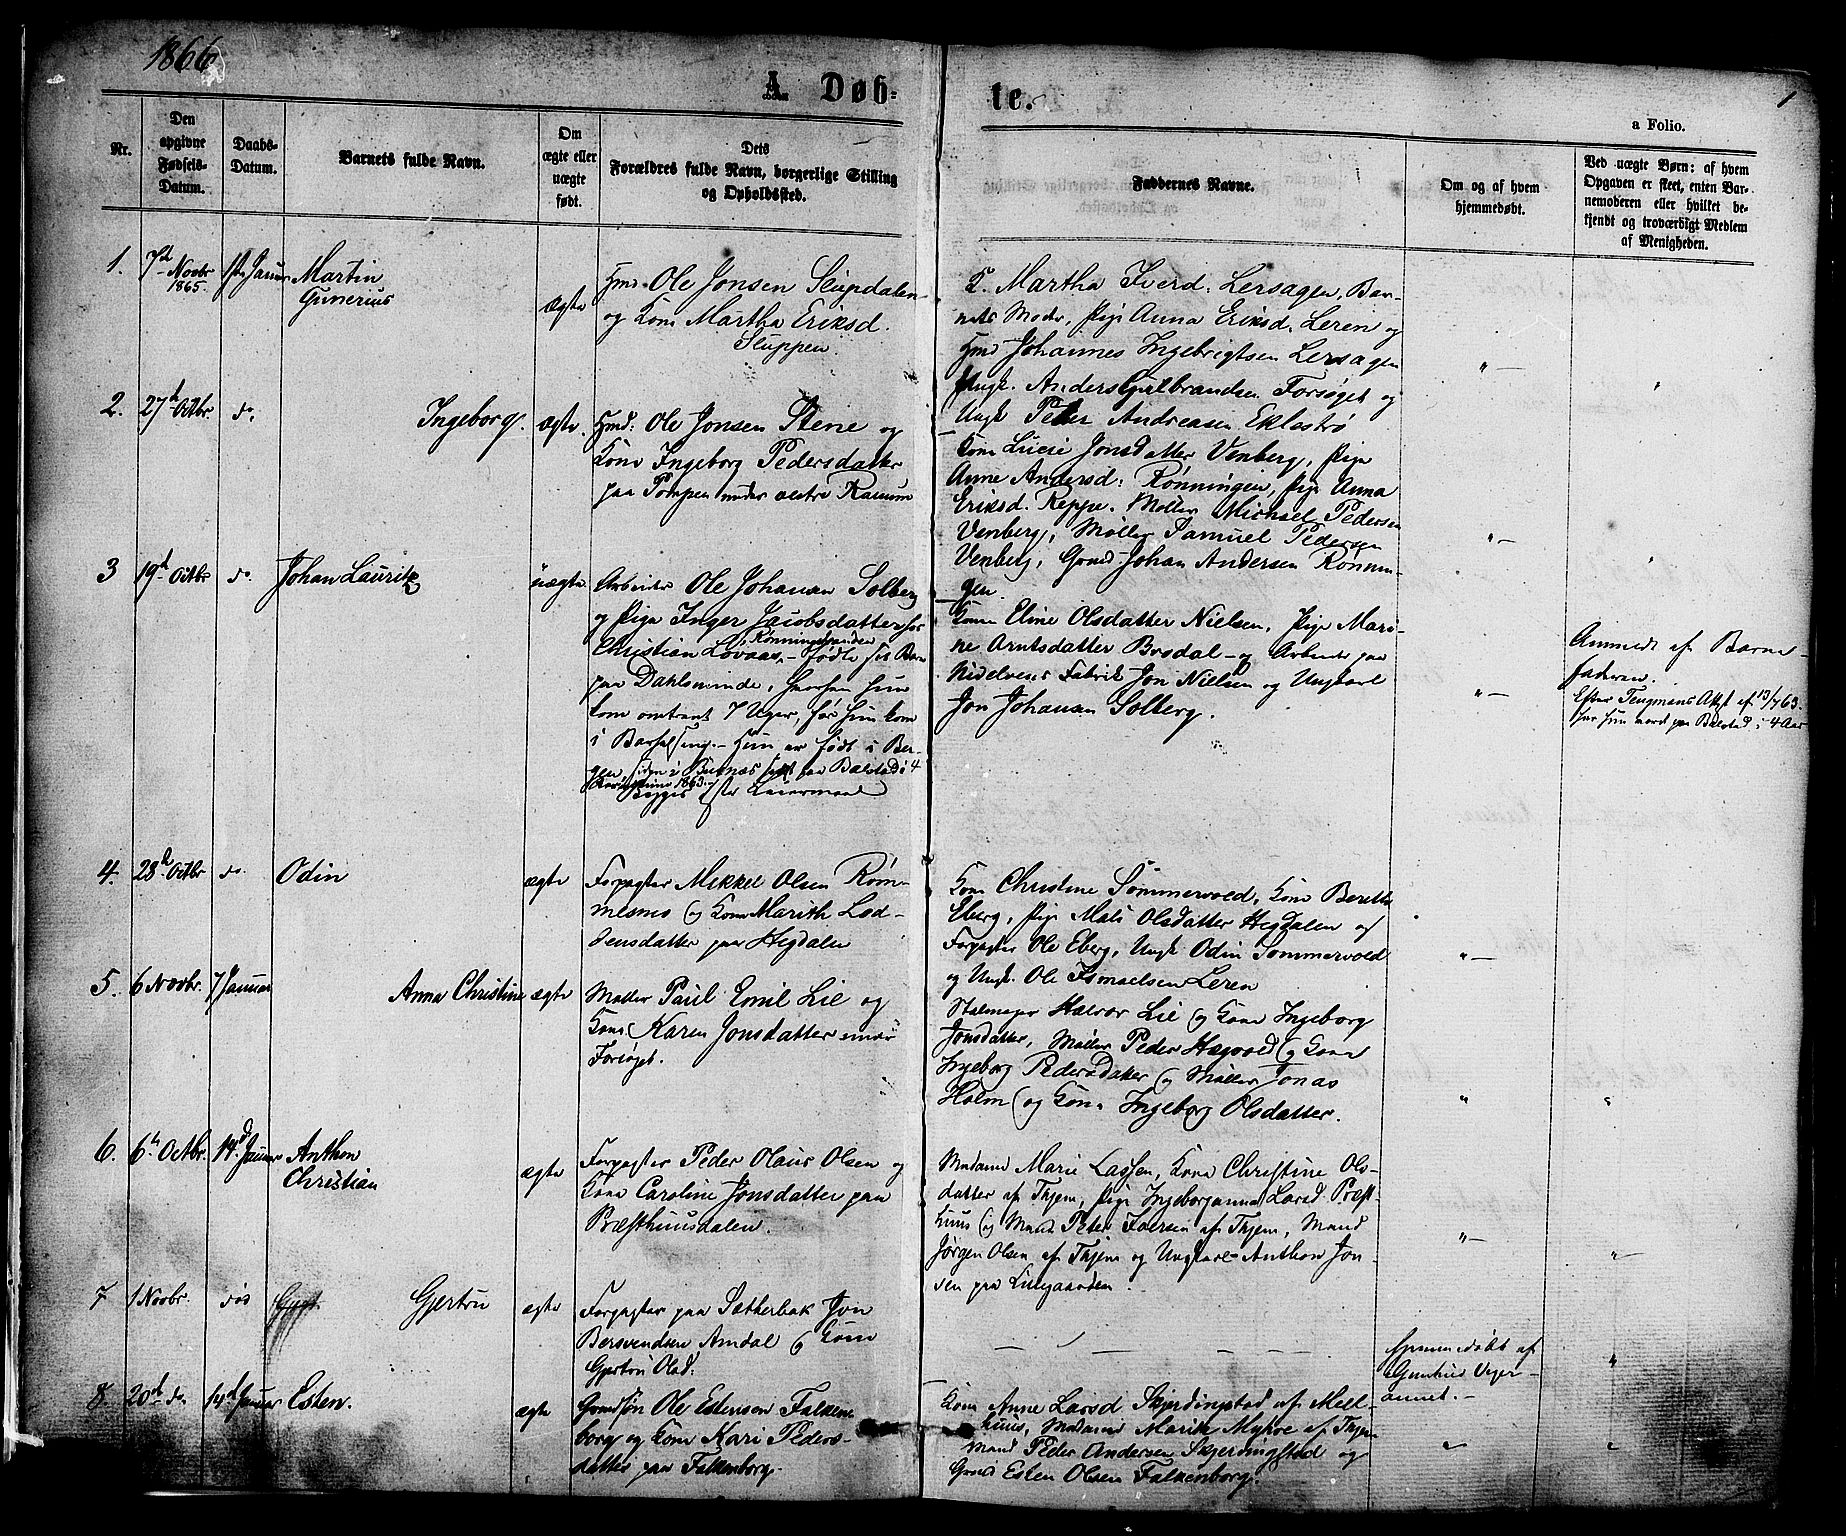 1866
A. Døb-
te.
1
a Folio.
Nr.
Den
opgivne
Fødsels-
Datum.
Daabs-
Datum.
Barnets fulde Navn.
Om
ægte eller
uægte
født.
Dets
Forældres fulde Navn, borgerlige Stilling
og Opholdssted.
Faddernes Navne.
Om og af hvem
hjemmedøbt.
Ved uægte Børn: af hvem
Opgaven er skeet, enten Bar-
nemoderen eller hvilket be-
kjendt og troværdigt Medlem
af Menigheden.
1.
7de Novbr
1865.
1ste Januar
Martin
Gunerius
ægte
Hmd. Ole Jonsen Slupdalen
og Kone Martha Eriksd.
Sluppen.
K. Martha Iverd. Lersagen, Bar-
nets Moder, Pige Anna Eriksd. Leren og
Hmd Johannes Ingebrigtsen Lersagen
Ungk. Anders Gulbrandsen Forsøget og
Ungk Peter Andreasen Eklestrø
"
"
2.
27de Octbr
do.
Ingeborg.
ægte.
Hmd: Ole Jonsen Stene og
Kone Ingeborg Pedersdatter
paa Pompen under vestre Ranum
Kone Lucie Jonsdatter Venberg, Pige
Anne Andersd: Rønningen, Pige Anna
Eriksd. Reppe. Møller Michael Pedersen
Venberg, Møller Samuel Pedersen
Venberg, Gmd Johan Andersen Rønnin-
gen.
"
"
3
19de Octbr
do.
Johan Lauritz
uægte
Arbeider Ole Johansen Solberg
og Pige Inger Jacobsdatter hos
Christian Løvaas, Rønningstranden – fødte sit Barn
paa Dahlsminde, hvorhen hun
kom omtrent 7 Uger, før hun kom
i Barselseng. – Hun er født i Ber-
gen, siden i paa Balstad i 4
1863.
Begges Leiermaal
Kone Eline Olsdatter Nielsen, Pige Mari-
ne Arntsdatter Brodal – og Arbeider paa
Nidelvens Fabrik Jon Nielsen og Ungkarl
Jon Johansen Solberg.
"
Anmeldt af Barne-
faderen.
Efter Attest af 13/7 63.
har hun været paa Balstad i 4 Aar
4.
28de Octbr
do.
Odin
ægte
Forpagter Mikkel Olsen Røm-
mesmo og Kone Marith Lod-
densdatter paa Hegdalen
Kone Christine Sommervold, Kone Berethe
Eberg, Pige Mali Olsdatter Hegdalen og
Forpagter Ole Eberg, Ungk. Odin Sommervold
og Ungk. Ole Ismaelsen Leren
"
5.
6 Novbr.
7 Januar
Anna Christine
ægte
Møller Paul Emil Lie og
Kone Karen Jonsdatter under
Forsøget.
Halvor Lie og Kone Ingeborg
Jonsdatter, Møller Peder Hegvold og Kone
Ingeborg Pedersdatter og Møller Jonas
Holm og Kone Ingeborg Olsdatter.
"
"
6.
6te Octbr.
14de Januar
Anthon
Christian
ægte
Forpagter Peder Olaus Olsen og
Kone Caroline Jonsdatter paa
Præsthuusdalen.
Madame Marie Lassen, Kone Christine Ols-
datter af Thjem, Pige Ingeborganna Larsd. Præst-
huus og Mand Peter Iversen af Thjem, Mand
Jørgen Olsen af Thjem og Ungkarl Anthon Jon-
sen paa Lillegaarden.
"
"
7
1 Novbr.
do
Gjertru
ægte
Forpagter paa Sætherbak Jon
Bersvendsen Amdal og Kone
Gjertru Olsd.
Hjemmedøbt af
Gunhild Vejer-
"
8.
20de do.
14de Januar
Esten.
ægte
Gmdsøn Ole Estensen Falken-
borg og Kone Kari Peders-
datter paa Falkenborg.
Kone Anne Larsd Skjerdingstad af Mel-
huus, Madame Marith Myhre af Thjem
Mand Peder Andersen Skjerdingstad og
Gmd Esten Olsen Falkenborg.
"
"